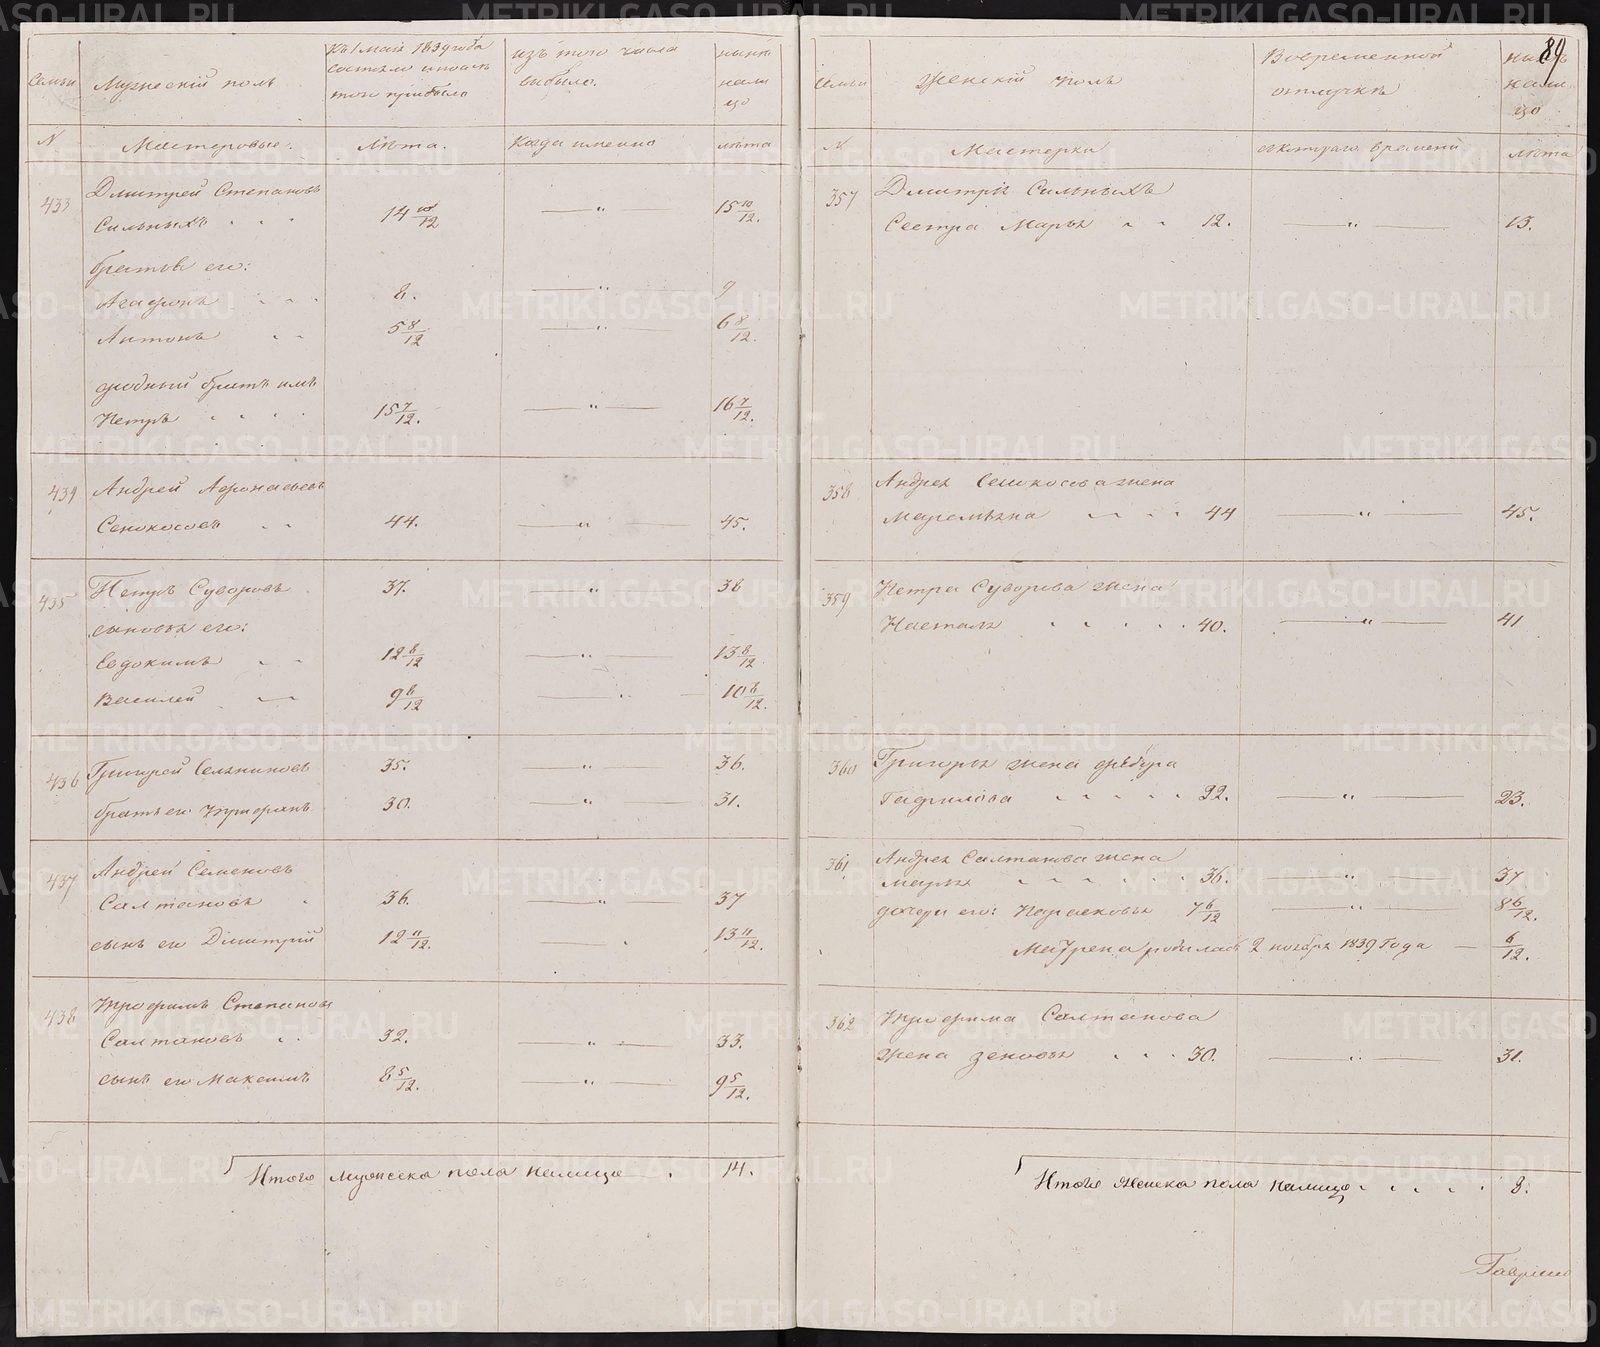 Семьи
Мужескій полъ
Къ 1 Маія 1839 года
состояло и послѣ
того прибыло
изъ того числа
выбыло.
нынѣ
нали
цо
N
Мастеровые.
Лѣта.
Когда именно
лѣта
433
Дмитрей Степановъ
Сильныхъ
14 10/12
15 10/12.
братья его:
Агафонъ 8. 9
Антонъ 5 8/12 6 8/12.
родный братъ имъ
Петръ 15 7/12. 16 7/12.
434 Андрей Афонасьевъ
Сенокосовъ 44. 45.
435 Петръ Суворовъ 37. 38
сыновья его:
Евдокимъ 12 8/12 13 8/12
Василей 9 8/12 10 8/12.
436 Григорей 35. 36.
братъ его 30. 31.
437 Андрей Семеновъ
Салтановъ 36. 37
сынъ его Дмитрій 12 11/12. 13 11/12.
438 Трофимъ Степановъ
Салтановъ 32. 33.
сынъ его Максимъ 8 5/12. 9 5/12.
Итого мужеска пола налицо 14.
89
Семьи
Женскій полъ
Вовременной
отлучкѣ
нынѣ
нали
цо
N
Мастерки
съ котораго времени
лѣта
357 Дмитрія Сильныхъ
Сестра Марья 12. 13.
358 Андрея Сенокосова жена
44 45.
359 Петра Суворова жена
Настасья 40. 41
360 Григорья жена
Гаврилова 22. 23.
361 Андрея Салтанова жена
Марья 36. 37
дочери его: Парасковья 7 6/12 8 6/12.
Матрена родилась 2 ноября 1839 года 6/12.
362 Трофима Салтанова
жена Зеновья 30. 31.
Итого женска пола налицо 8.
METRIKI.GASO-URAL.RU